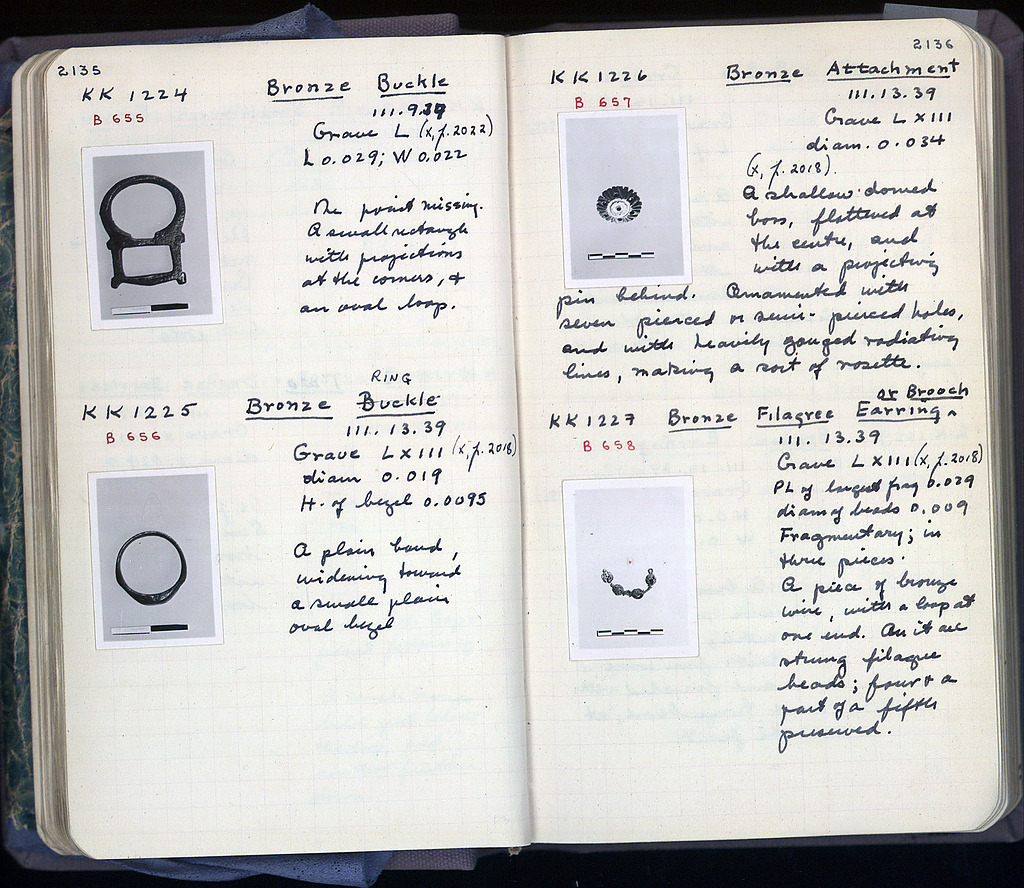 2135
KK 1224 Bronze Buckle
B 655
III.9.39
Grave L (X, p.2022)
L 0.029; W 0.022
The point missing.
A small rectangle
with projections
at the corners, &
an oval loop.
RING
KK 1225 Bronze Buckle
B 656
III. 13. 39
Grave LXIII (X, p.2018)
diam 0.019
H. of bezel 0.0095
A plain band,
widening toward
a small plain
oval bezel
2136
KK 1226 Bronze Attachment
B 657
III.13.39
Grave LXIII
diam. 0.034
(X, p. 2018).
A shallow domed
boss, flattened at
the centre, and
with a projecting
pin behind. Ornamented with
seven pierced or semi-pierced holes,
and with heavily gouged radiating
lines, making a sort of rosette.
or Brooch
KK 1227 Bronze Filagree Earring ^
B 658
III. 13.39
Grave LXIII (X, p.2018)
PL of largest frag 0.029
diam of beads 0.009
Fragmentary; in
three pieces.
A piece of bronze
wire, with a loop at
one end. On it are
strung filagree
beads; four & a
part of a fifth
preserved.